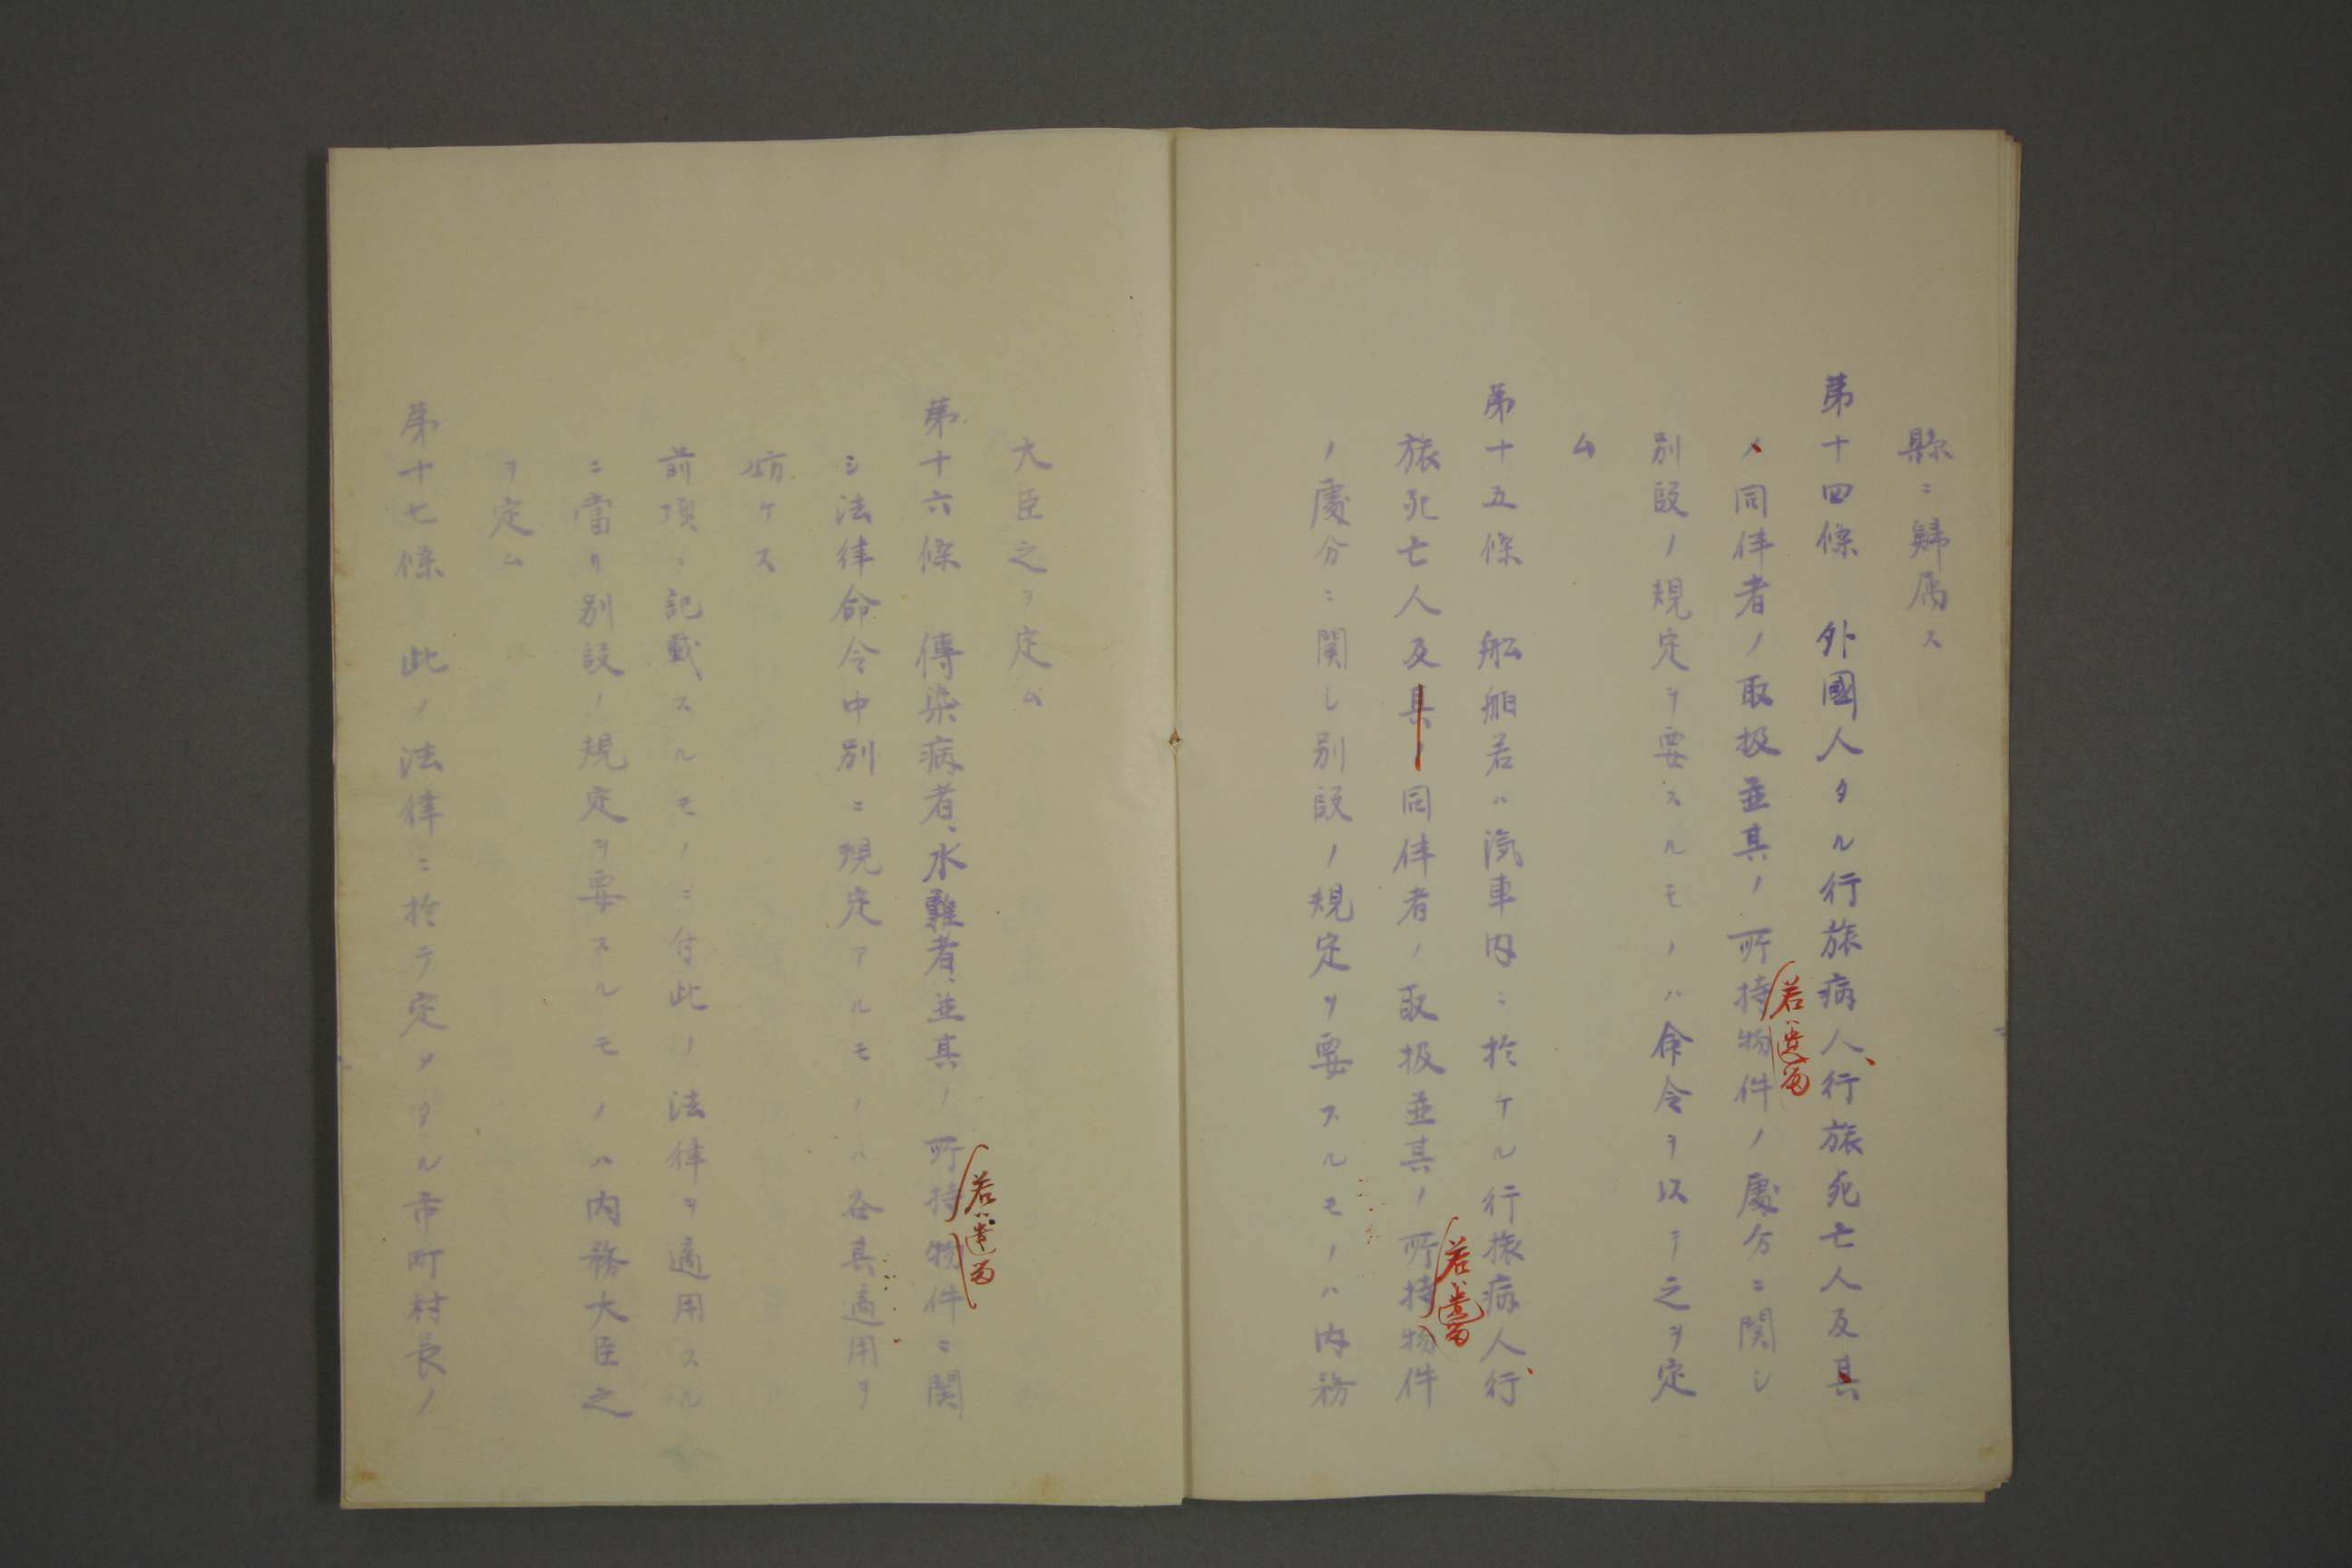 縣ニ歸属ス
第十四條　外國人タル行旅病人、行旅死亡人及其
ノ同伴者ノ取扱並其ノ所持物件ノ處分ニ関シ
若ハ遺留
別段ノ規定ヲ要スルモノハ命令ヲ以テ之ヲ定
ム
第十五條　船舶若ハ汽車内ニ於ケル行旅病人、行
旅死亡人及其ノ同伴者ノ取扱並其ノ所持物件
若ハ遺留
ノ處分ニ関シ別段ノ規定ヲ要スルモノハ内務
大臣之ヲ定ム
第十六條　傳染病者、水難者、並其ノ所持物件ニ関
若ハ遺留
シ法律命令中別ニ規定アルモノハ各其適用ヲ
妨ケス
前項ニ記載スルモノニ付此ノ法律ヲ適用スル
ニ當リ別段ノ規定ヲ要スルモノハ内務大臣之
ヲ定ム
第十七條　此ノ法律ニ於テ定メタル市町村長ノ